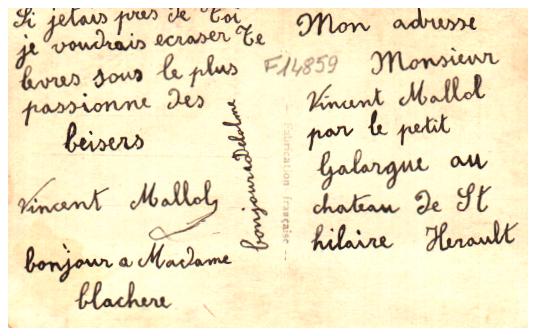 Si jetais pres de Toi
je voudrais ecraser Te
levres sous le plus
passionne des
beisers
Vincent Mallol
bonjour a Madame
blachere
bonjour a Delolme
Fabrication française
F14859
Mon adresse
Monsieur
Vincent Mallol
par le petit
Galargue au
chateau de St
hilaire Herault